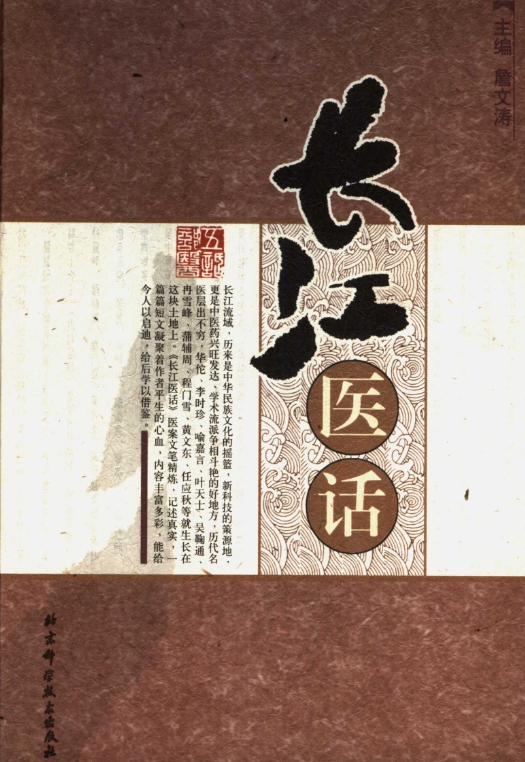 主编 詹文涛
长江
医话
长江流域，历来是中华民族文化的摇篮，新科技的策源地，
更是中医药兴旺发达、学术流派争相斗艳的好地方，历代名
医层出不穷，华佗、李时珍、喻嘉言、叶天士、吴鞠通、
冉雪峰、蒲辅周、程门雪、黄文东、任应秋等就生长在
这块土地上。《长江医话》医案文笔精炼，记述真实，一
篇篇短文凝聚着作者平生的心血，内容丰富多彩，能给
今人以启迪，给后学以借鉴。
北京科学技术出版社